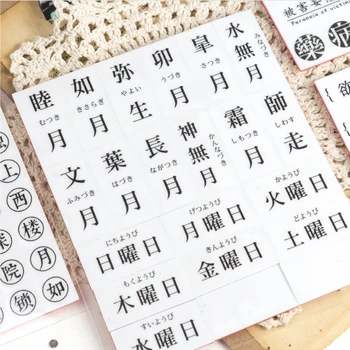 睦月
むつき
如月
きさらぎ
弥生
やよい
卯月
うづき
皐月
さつき
水無月
みなづき
文月
ふみづき
葉月
はづき
長月
ながつき
神無月
かんなづき
霜月
しもつき
師走
しわす
にちようび
日曜日
げつようび
月曜日
かようび
火曜日
もくようび
木曜日
きんようび
金曜日
どようび
土曜日
すいようび
水曜日
被害妄
Paranoia of victim
藥 病
{ 欲
上
西
楼
深
院
月
锁
如